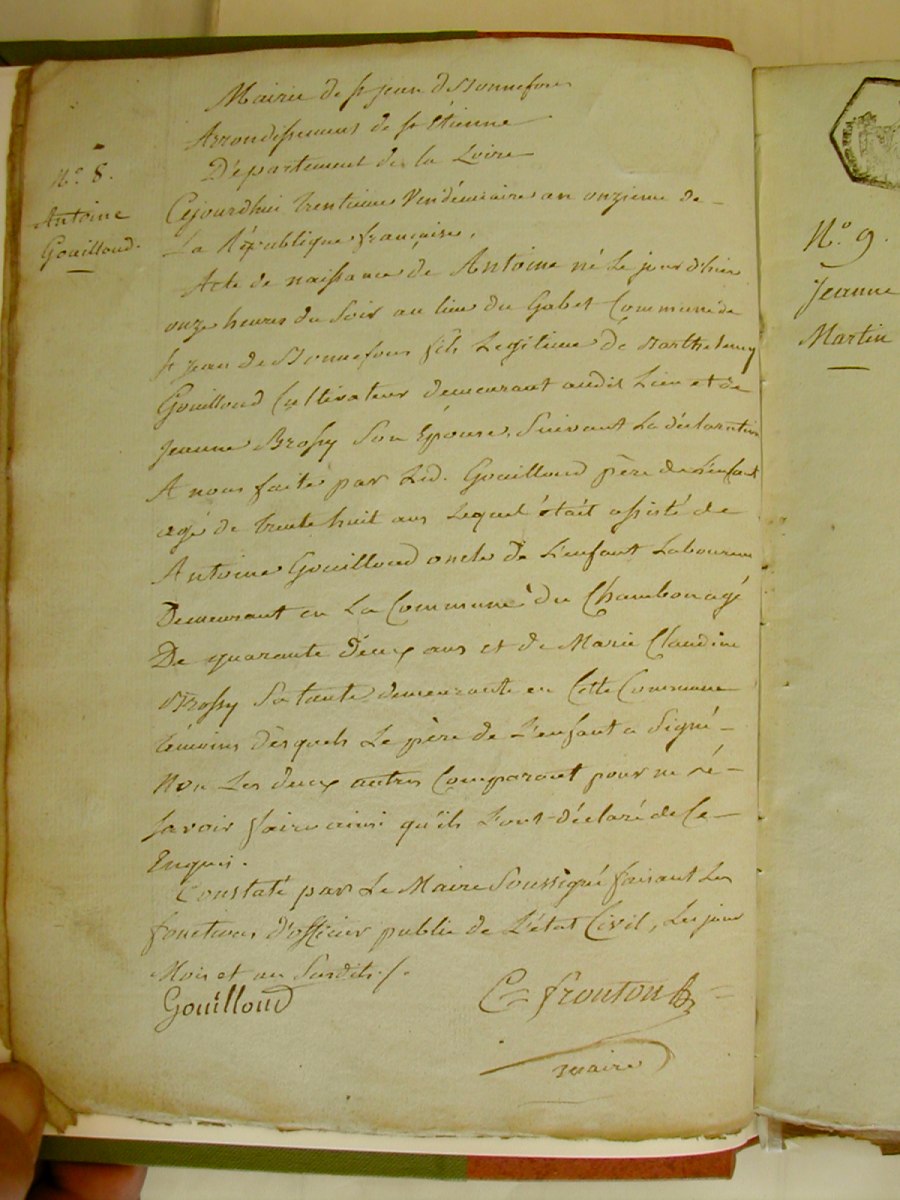 Mairie de st jean de Bonnefons
Arrondissement de st étienne
Département de la Loire
N.o 8.
Antoine
Gouilloud.
Cejourdhui trentieme Vendémiaire an onzieme de
La République française.
Acte de naissance de Antoine né le jour d'hier
onze heures du Soir au lieu du Gabet Commune de
st jean de Bonnefons fils Légitime de Barthelemy
Gouilloud Cultivateur demeurant audit Lieu et de
Jeanne Brossy Son Epouse, Suivant La déclaration
A nous faite par Led. Gouilloud père de L'enfant
agé de trente huit ans Lequel était assisté de
Antoine Gouilloud oncle de L'enfant Laboureur
Demeurant en La Commune du Chambon agé
De quarante deux ans et de Marie Claudine
Brossy Sa tante demeurante en Cette Commune
témoins desquels Le père de L'enfant a Signé
Non Les deux autres Comparant pour ne
Savoir faire ainsi qu'ils L'ont déclaré de Ce
Enquis.
Constaté par Le Maire Soussigné faisant Les
fonctions d'officier public de L'état Civil, Les jour
Mois et an Susdits ./.
Gouilloud
C fronton
maire
N.o 9.
Jeanne
Martin